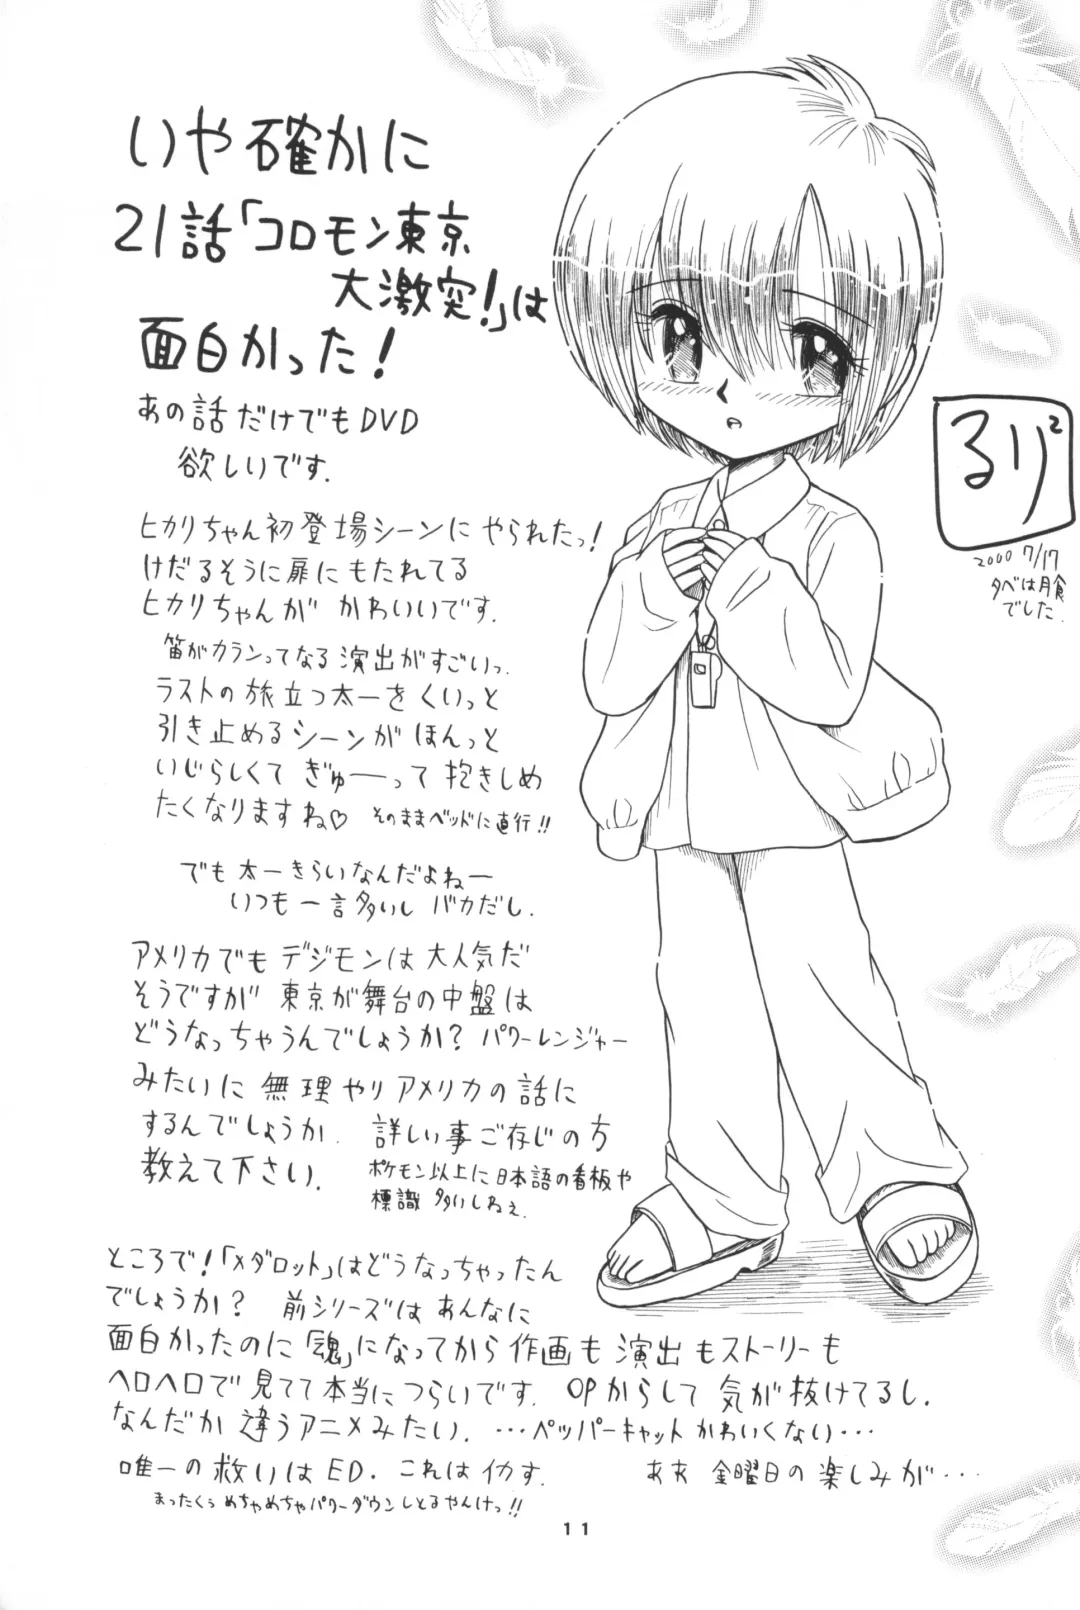 いや確かに
21話「コロモン東京
大激突!」は
面白かった!
あの話だけでもDVD
欲しいです.
ヒカリちゃん初登場シーンに やられたっ!
けだるそうに扉にもたれてる
ヒカリちゃんが かわいいです.
笛がカランってなる演出がすごいっ.
ラストの旅立つ太一をくいっと
引き止めるシーンが ほんっと
いじらしくて ぎゅーーって 抱きしめ
たくなりますね♡ そのままベッドに直行!!
でも 太一きらいなんだよねー
いつも 一言多いし バカだし.
アメリカでも デジモンは 大人気だ
そうですが 東京が舞台の中盤は
どうなっちゃうんでしょうか? パワーレンジャー
みたいに 無理やり アメリカの話に
するんでしょうか. 詳しい事ご存じの方
教えて下さい. ポケモン以上に日本語の看板や
標識 多いしねぇ.
ところで!「メダロット」はどうなっちゃったん
でしょうか? 前シリーズは あんなに
面白かったのに「魂」になってから 作画も 演出もストーリーも
ヘロヘロで 見てて本当に つらいです. OPからして 気が抜けてるし.
なんだか 違うアニメみたい. …ペッパーキャット かわいくない…
唯一の救いは ED. これは イカす. ああ 金曜日の楽しみが…
まったくぅ めちゃめちゃパワーダウンしとるやんけっ!!
るり²
2000 7/17
夕べは月食
でした.
11